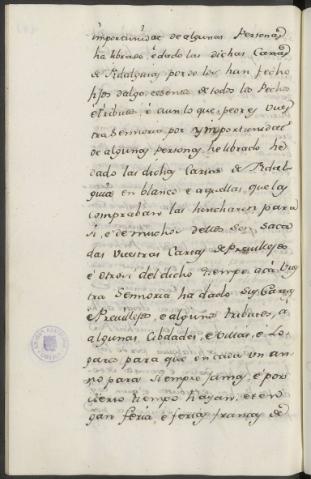 importunidad de algunas Personas
ha librado, é dado las dichas Cartas
de Fidalguia, por do les han fecho
fijos dalgo, essentos de todos los Pechos
é tributos, é aun lo que peor es, vues
tra Sennoria por ymportunidad
de algunas personas, he librado he
dado las dichas Cartas de Fidal
guia en blanco é aquellas que las
compraban las hincharen para
si, é de muchos dellos son saca
das vuestras Cartas de Previllejos
é otrosi del dicho tiempo acá Vues
tra Sennoria ha dado sus Cartas
é Previllejos, é algunos tributos, á
algunas Cibdades, é villas, é Lo
gares para que en cada un an
no para siempre jamas, é por
cierto tiempo hayan, et ten
gan feria, é ferias francas de